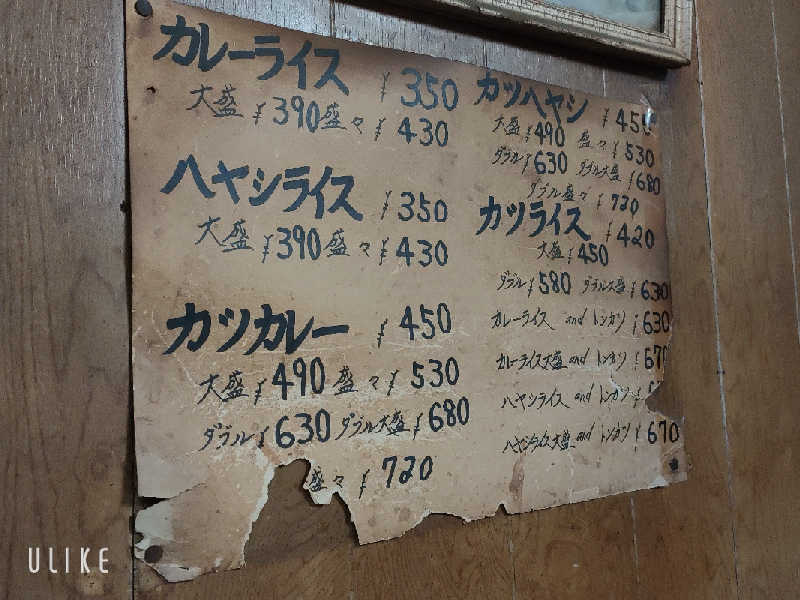 カレーライス ¥350
大盛 ¥390 盛々 ¥430
ハヤシライス ¥350
大盛 ¥390 盛々 ¥430
カツカレー ¥450
大盛 ¥490 盛々 ¥530
ダブル ¥630 ダブル大盛 ¥680
盛々 ¥720
カツハヤシ ¥450
大盛 ¥490 盛々 ¥530
ダブル ¥630 ダブル大盛 ¥680
ダブル盛々 ¥720
カツライス ¥420
大盛 ¥450
ダブル ¥580 ダブル大盛 ¥630
カレーライス and トンカツ ¥630
カレーライス大盛 and トンカツ ¥670
ハヤシライス and トンカツ ¥
ハヤシライス大盛 and トンカツ ¥670
ULIKE